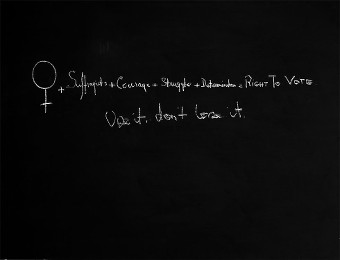 ♀ + Suffragists + Courage + Struggle + Determination = RIGHT TO VOTE
Use it, don't lose it.